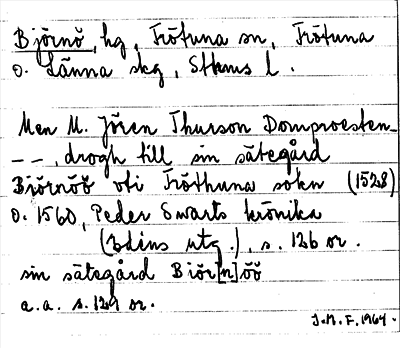 Björnö, hg, Frötuna sn, Frötuna
o. Länna skg, Sthms l.
Men M. Jören Thurson Domproesten_
— —, drogh till sin sätegård
Biörnöö uti Fröthuna sokn (1528)
o. 1560, Peder Swarts krönika
(Edéns utg.), s. 126 or.
sin sätegård Biör[n]öö
a.a. s. 129 or.
J.M.F. 1964.